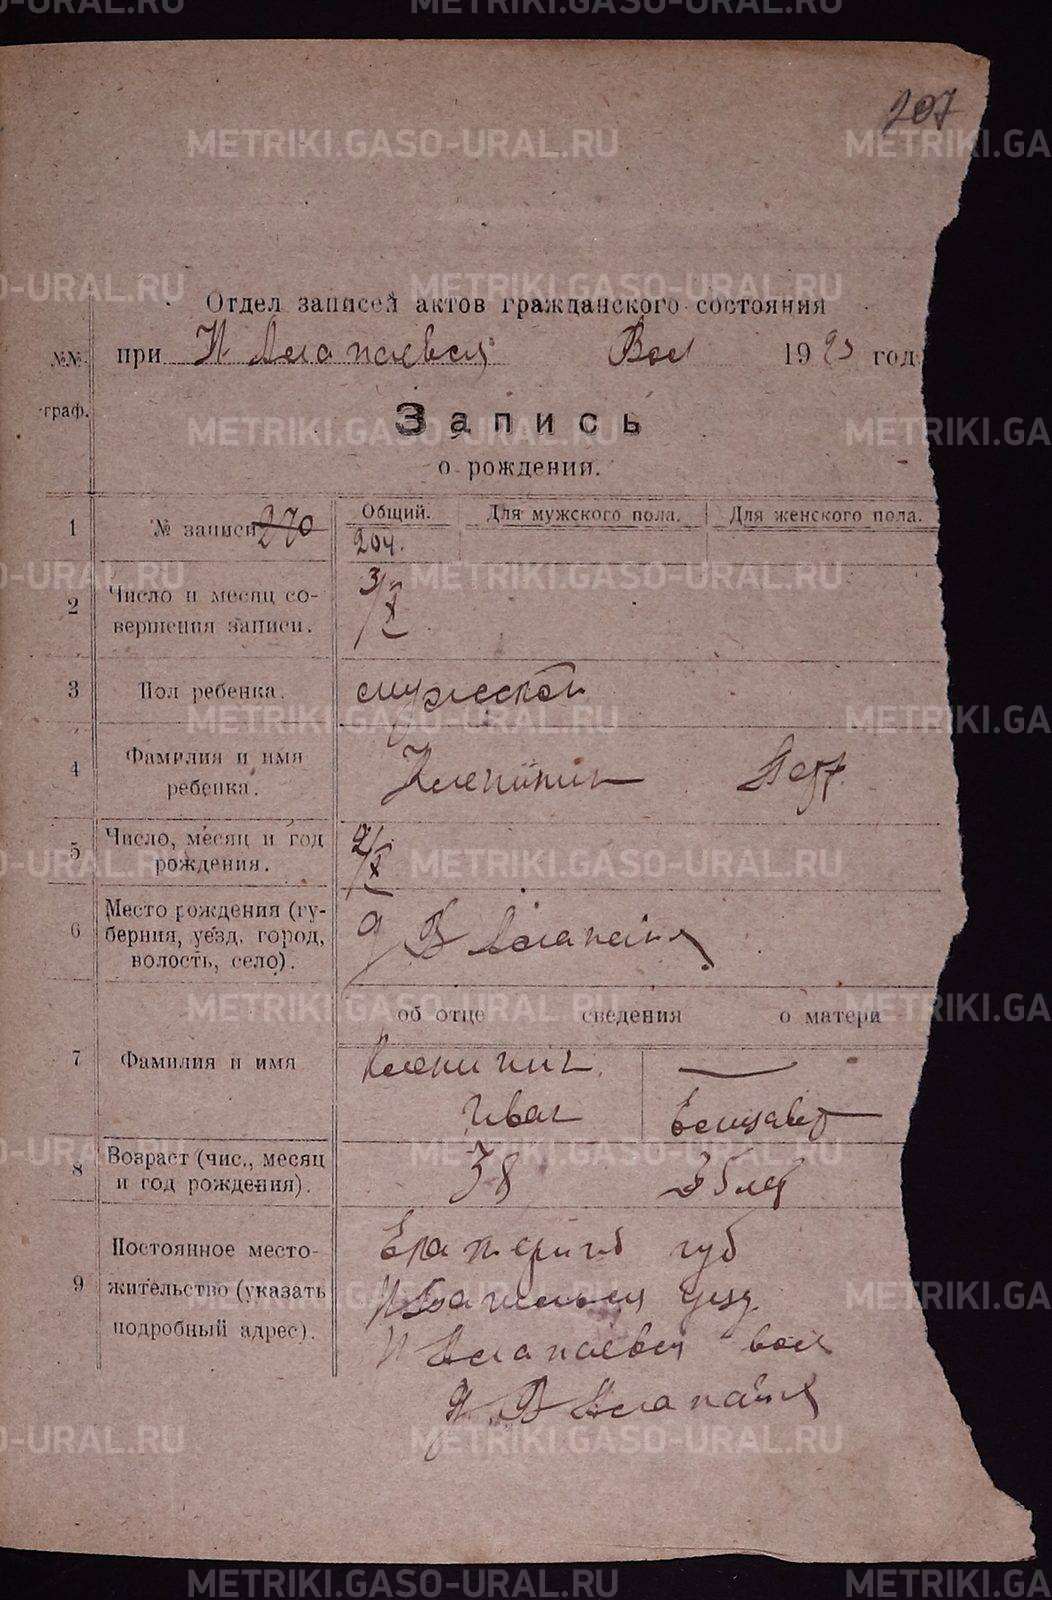 207
Отдел записей актов гражданского состояния
при Н Алапаевск Вол 1923 год
№№ граф.
Запись
о рождении.
1 № записи 270 Общий. Для мужского пола. Для женского пола.
204.
2 Число и месяц со-
вершения записи. 3/X
3 Пол ребенка. мужской
4 Фамилия и имя
ребенка. Клепинин
5 Число, месяц и год
рождения. 2/X
6 Место рождения (гу-
берния, уезд, город,
волость, село). д В Алапаиха
об отце сведения о матери
7 Фамилия и имя Клепинин —
Иван Елизавет
8 Возраст (чис., месяц
и год рождения). 38 35 лет
9 Постоянное место-
жительство (указать
подробный адрес). Екатеринб губ
уезд
Н Алапаевск вол
В Алапаиха
METRIKI.GASO-URAL.RU